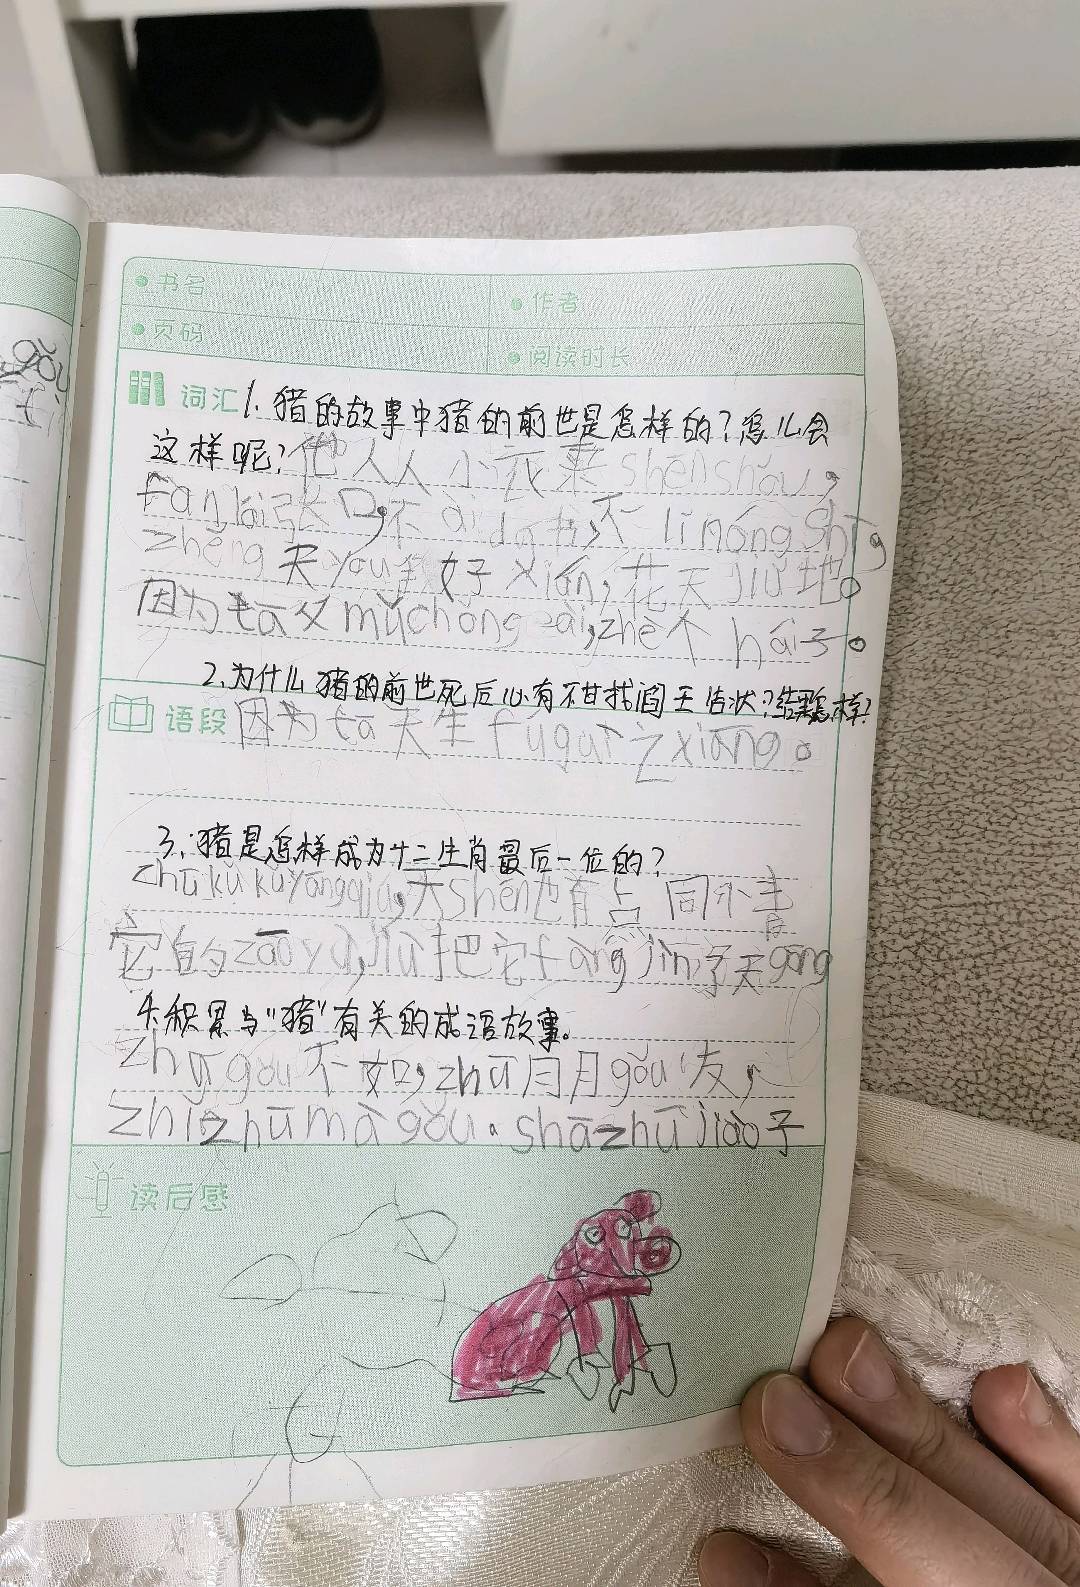 gǒu
书名
作者
页码
阅读时长
词汇 1.猪的故事中猪的前世是怎样的?怎么会
这样呢?他人人小衣来shēnshǒu,
Fàn lái张口,不ài dú书,不lǐ nóng shì,
zhěng天yóu手好xián,花天jiǔ地。
因为tā父mǔchǒng ài zhè个hái子。
2.为什么猪的前世死后心有不甘找阎王告状?结果怎样?
语段 因为tā天生fúguì之xiàng。
3.猪是怎样成为十二生肖最后一位的?
zhū kǔ kǔ yāngqiú,天shén也有点同小青
它的zāo yù,jiù把它fàng jìn了天gōng
4.积累与"猪"有关的成语故事。
zhū gǒu不如,zhū月月gǒu友,
zhǐ zhū mà gǒu.shā zhū jiào子
读后感